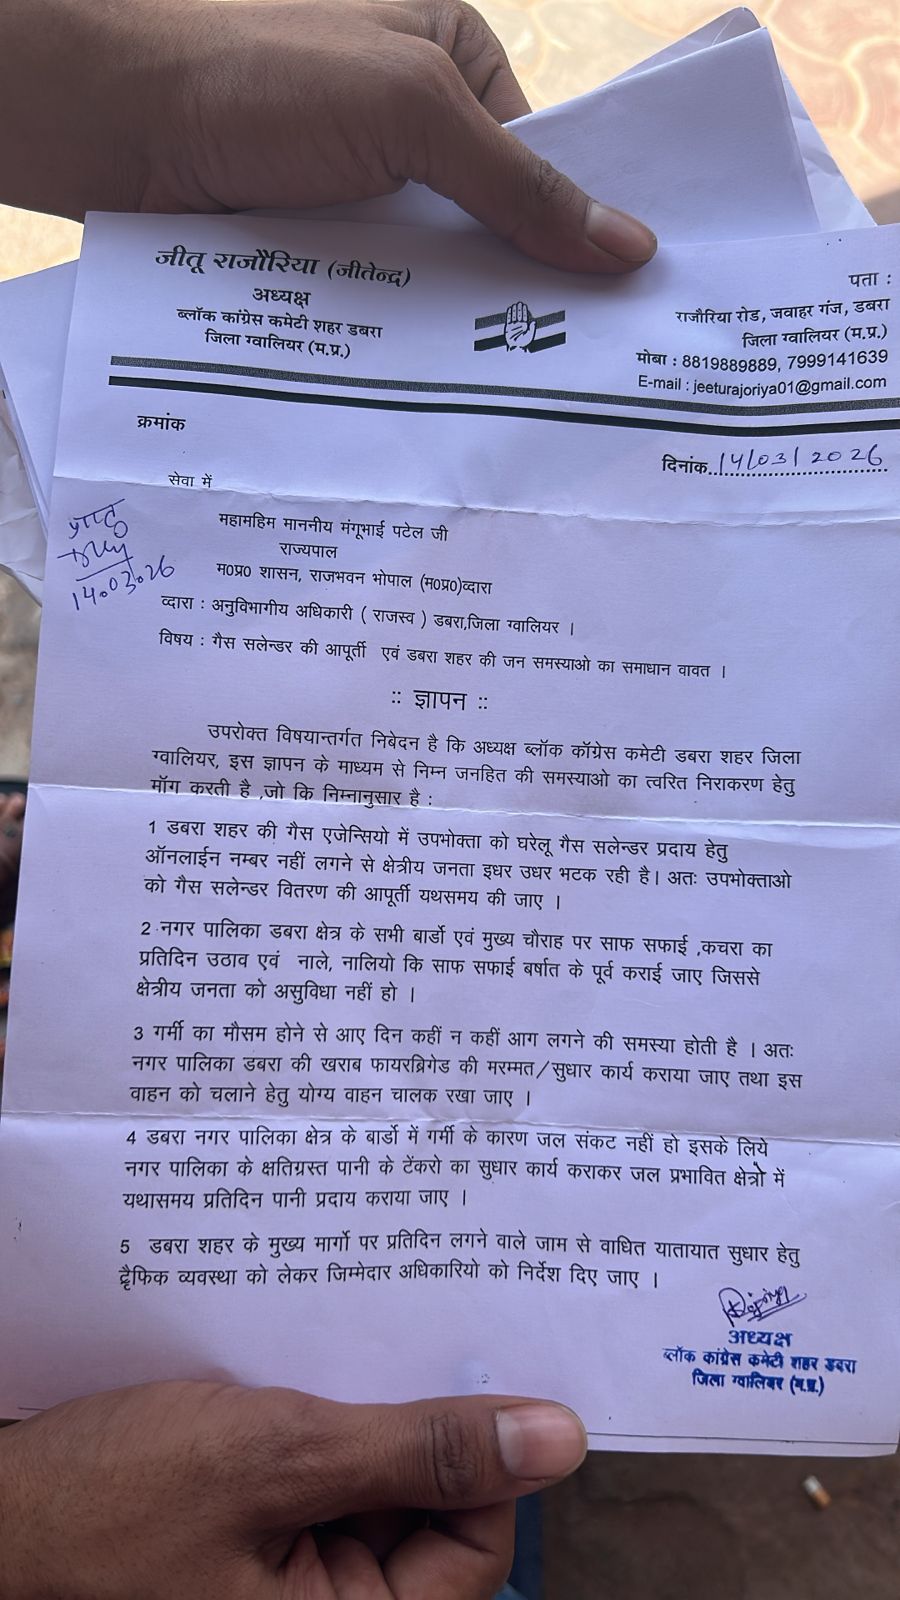 जीतू राजौरिया (जीतेन्द्र)
अध्यक्ष
ब्लॉक कांग्रेस कमेटी शहर डबरा
जिला ग्वालियर (म.प्र.)
पता :
राजौरिया रोड, जवाहर गंज, डबरा
जिला ग्वालियर (म.प्र.)
मोबा : 8819889889, 7999141639
E-mail : jeeturajoriya01@gmail.com
क्रमांक
दिनांक..14/03/2026
सेवा में
प्राप्त
14.03.26
महामहिम माननीय मंगूभाई पटेल जी
राज्यपाल
म0प्र0 शासन, राजभवन भोपाल (म0प्र0)व्दारा
व्दारा : अनुविभागीय अधिकारी ( राजस्व ) डबरा,जिला ग्वालियर ।
विषय : गैस सलेन्डर की आपूर्ती एवं डबरा शहर की जन समस्याओ का समाधान वावत ।
:: ज्ञापन ::
उपरोक्त विषयान्तर्गत निबेदन है कि अध्यक्ष ब्लॉक कॉग्रेस कमेटी डबरा शहर जिला
ग्वालियर, इस ज्ञापन के माध्यम से निम्न जनहित की समस्याओ का त्वरित निराकरण हेतु
मॉग करती है ,जो कि निम्नानुसार है :
1 डबरा शहर की गैस एजेन्सियो में उपभोक्ता को घरेलू गैस सलेन्डर प्रदाय हेतु
ऑनलाईन नम्बर नहीं लगने से क्षेत्रीय जनता इधर उधर भटक रही है। अतः उपभोक्ताओ
को गैस सलेन्डर वितरण की आपूर्ती यथसमय की जाए ।
2 नगर पालिका डबरा क्षेत्र के सभी बार्डो एवं मुख्य चौराह पर साफ सफाई ,कचरा का
प्रतिदिन उठाव एवं नाले, नालियो कि साफ सफाई बर्षात के पूर्व कराई जाए जिससे
क्षेत्रीय जनता को असुविधा नहीं हो ।
3 गर्मी का मौसम होने से आए दिन कहीं न कहीं आग लगने की समस्या होती है । अतः
नगर पालिका डबरा की खराब फायरब्रिगेड की मरम्मत/सुधार कार्य कराया जाए तथा इस
वाहन को चलाने हेतु योग्य वाहन चालक रखा जाए ।
4 डबरा नगर पालिका क्षेत्र के बार्डो में गर्मी के कारण जल संकट नहीं हो इसके लिये
नगर पालिका के क्षतिग्रस्त पानी के टेंकरो का सुधार कार्य कराकर जल प्रभावित क्षेत्रो में
यथासमय प्रतिदिन पानी प्रदाय कराया जाए ।
5 डबरा शहर के मुख्य मार्गो पर प्रतिदिन लगने वाले जाम से वाधित यातायात सुधार हेतु
ट्रैफिक व्यवस्था को लेकर जिम्मेदार अधिकारियो को निर्देश दिए जाए ।
अध्यक्ष
ब्लॉक कांग्रेस कमेटी शहर डबरा
जिला ग्वालियर (म.प्र.)